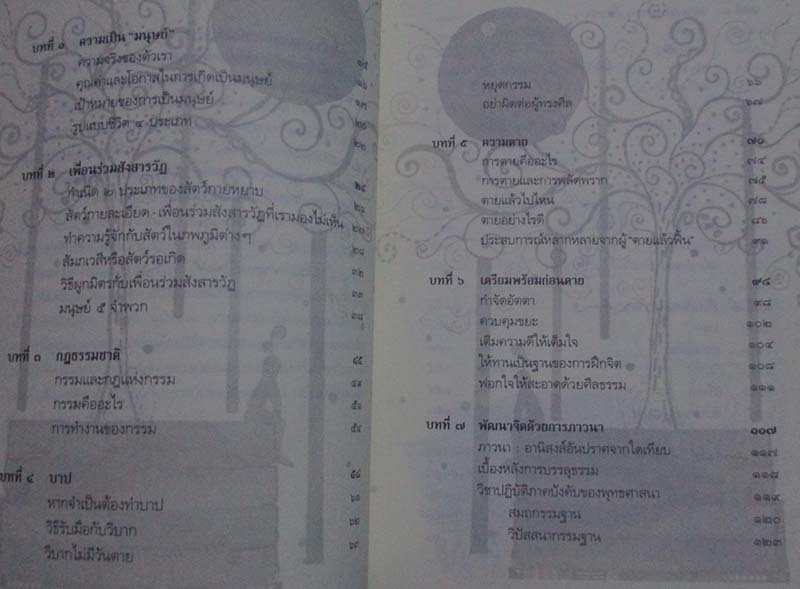 บทที่ ๑ ความเป็น "มนุษย์"
ความจริงของตัวเรา
คุณค่าและโอกาสในการเกิดเป็นมนุษย์
เป้าหมายของการเป็นมนุษย์
รูปแบบชีวิต ๔ ประเภท
บทที่ ๒ เพื่อนร่วมสังสารวัฏ
กำเนิด ๒ ประเภทของสัตว์กายหยาบ
สัตว์กายละเอียด - เพื่อนร่วมสังสารวัฏที่เรามองไม่เห็น
ทำความรู้จักกับสัตว์ในภพภูมิต่างๆ
สัมภเวสีหรือสัตว์รอเกิด
วิธีผูกมิตรกับเพื่อนร่วมสังสารวัฏ
มนุษย์ ๕ จำพวก
บทที่ ๓ กฎธรรมชาติ ๔๕
กรรมและกฎแห่งกรรม ๔๙
กรรมคืออะไร ๕๑
การทำงานของกรรม ๕๔
บทที่ ๔ บาป ๕๘
หากจำเป็นต้องทำบาป ๖๑
วิธีรับมือกับวิบาก ๖๒
วิบากไม่มีวันตาย
หยุดกรรม ๖๖
อย่าผิดต่อผู้ทรงศีล ๖๗
บทที่ ๕ ความตาย ๗๐
การตายคืออะไร ๗๔
การตายและการพลัดพราก ๗๕
ตายแล้วไปไหน ๗๘
ตายอย่างไรดี ๘๖
ประสบการณ์หลากหลายจากผู้ "ตายแล้วฟื้น" ๙๑
บทที่ ๖ เตรียมพร้อมก่อนตาย ๙๔
กำจัดอัตตา ๙๘
ควบคุมขยะ ๑๐๒
เติมความดีให้เต็มใจ ๑๐๔
ให้ทานเป็นฐานของการฝึกจิต ๑๐๘
ฟอกใจให้สะอาดด้วยศีลธรรม ๑๑๑
บทที่ ๗ พัฒนาจิตด้วยการภาวนา ๑๑๗
ภาวนา : อานิสงส์อันปราศจากใดเทียบ ๑๑๗
เบื้องหลังการบรรลุธรรม ๑๑๘
วิชาปฏิบัติภาคบังคับของพุทธศาสนา ๑๑๙
สมถกรรมฐาน ๑๒๐
วิปัสสนากรรมฐาน ๑๒๓